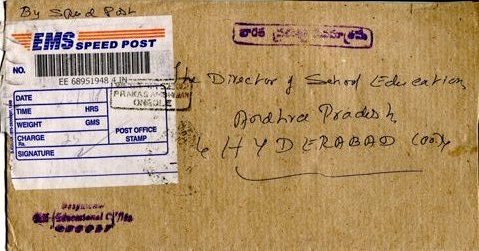 By Speed Post
EMS SPEED POST
NO.
EE 68951948 4 IN
DATE
TIME HRS
WEIGHT GMS
CHARGE
Rs.
SIGNATURE
POST OFFICE
STAMP
PRAKASAM
ONGOLE
భారత ప్రభుత్వ సేవార్థము
The Director of School Education,
Andhra Pradesh,
HYDERABAD
Educational Officer
ONGOLE